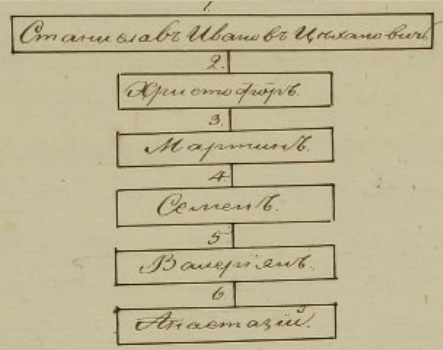 1.
Станиславъ Ивановъ Цѣхановичъ
2.
Христофоръ.
3.
Мартинъ.
4.
Семенъ.
5
Валеріянъ.
6.
Анастазій.